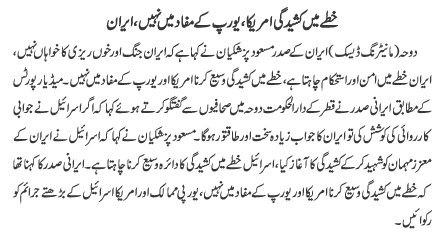 خطے میں کشیدگی امریکا، یورپ کے مفاد میں نہیں، ایران
دوحہ (مانیٹرنگ ڈیسک) ایران کے صدر مسعود پزشکیان نے کہا ہے کہ ایران جنگ اور خوں ریزی کا خواہاں نہیں،
ایران خطے میں امن اور استحکام چاہتا ہے، خطے میں کشیدگی وسیع کرنا امریکا اور یورپ کے مفاد میں نہیں۔ میڈیا رپورٹس
کے مطابق ایرانی صدر نے قطر کے دارالحکومت دوحہ میں صحافیوں سے گفتگو کرتے ہوئے کہا کہ اگر اسرائیل نے جوابی
کارروائی کی کوشش کی تو ایران کا جواب زیادہ سخت اور طاقتور ہوگا۔ مسعود پزشکیان نے کہا کہ اسرائیل نے ایران کے
معزز مہمان کو شہید کر کے کشیدگی کا آغاز کیا، اسرائیل خطے میں کشیدگی کا دائرہ وسیع کرنا چاہتا ہے۔ ایرانی صدر کا کہنا تھا
کہ خطے میں کشیدگی وسیع کرنا امریکا اور یورپ کے مفاد میں نہیں، یورپی ممالک اور امریکا اسرائیل کے بڑھتے جرائم کو
رکوائیں۔